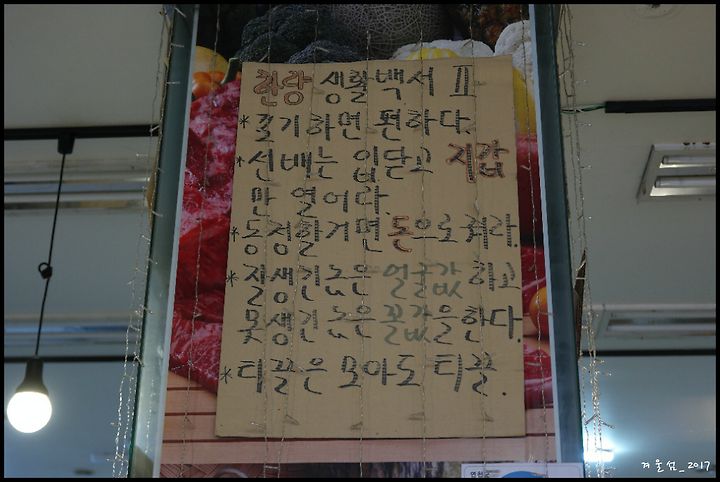 한량 생활백서 Ⅱ
*포기하면 편하다.
*선배는 입닫고 지갑
만 열어다.
*동정할거면 돈으로줘라.
*잘생긴놈은 얼굴값 하고
못생긴놈은 꼴값을한다.
*티끌은 모아도 티끌.
겨울섬_2017